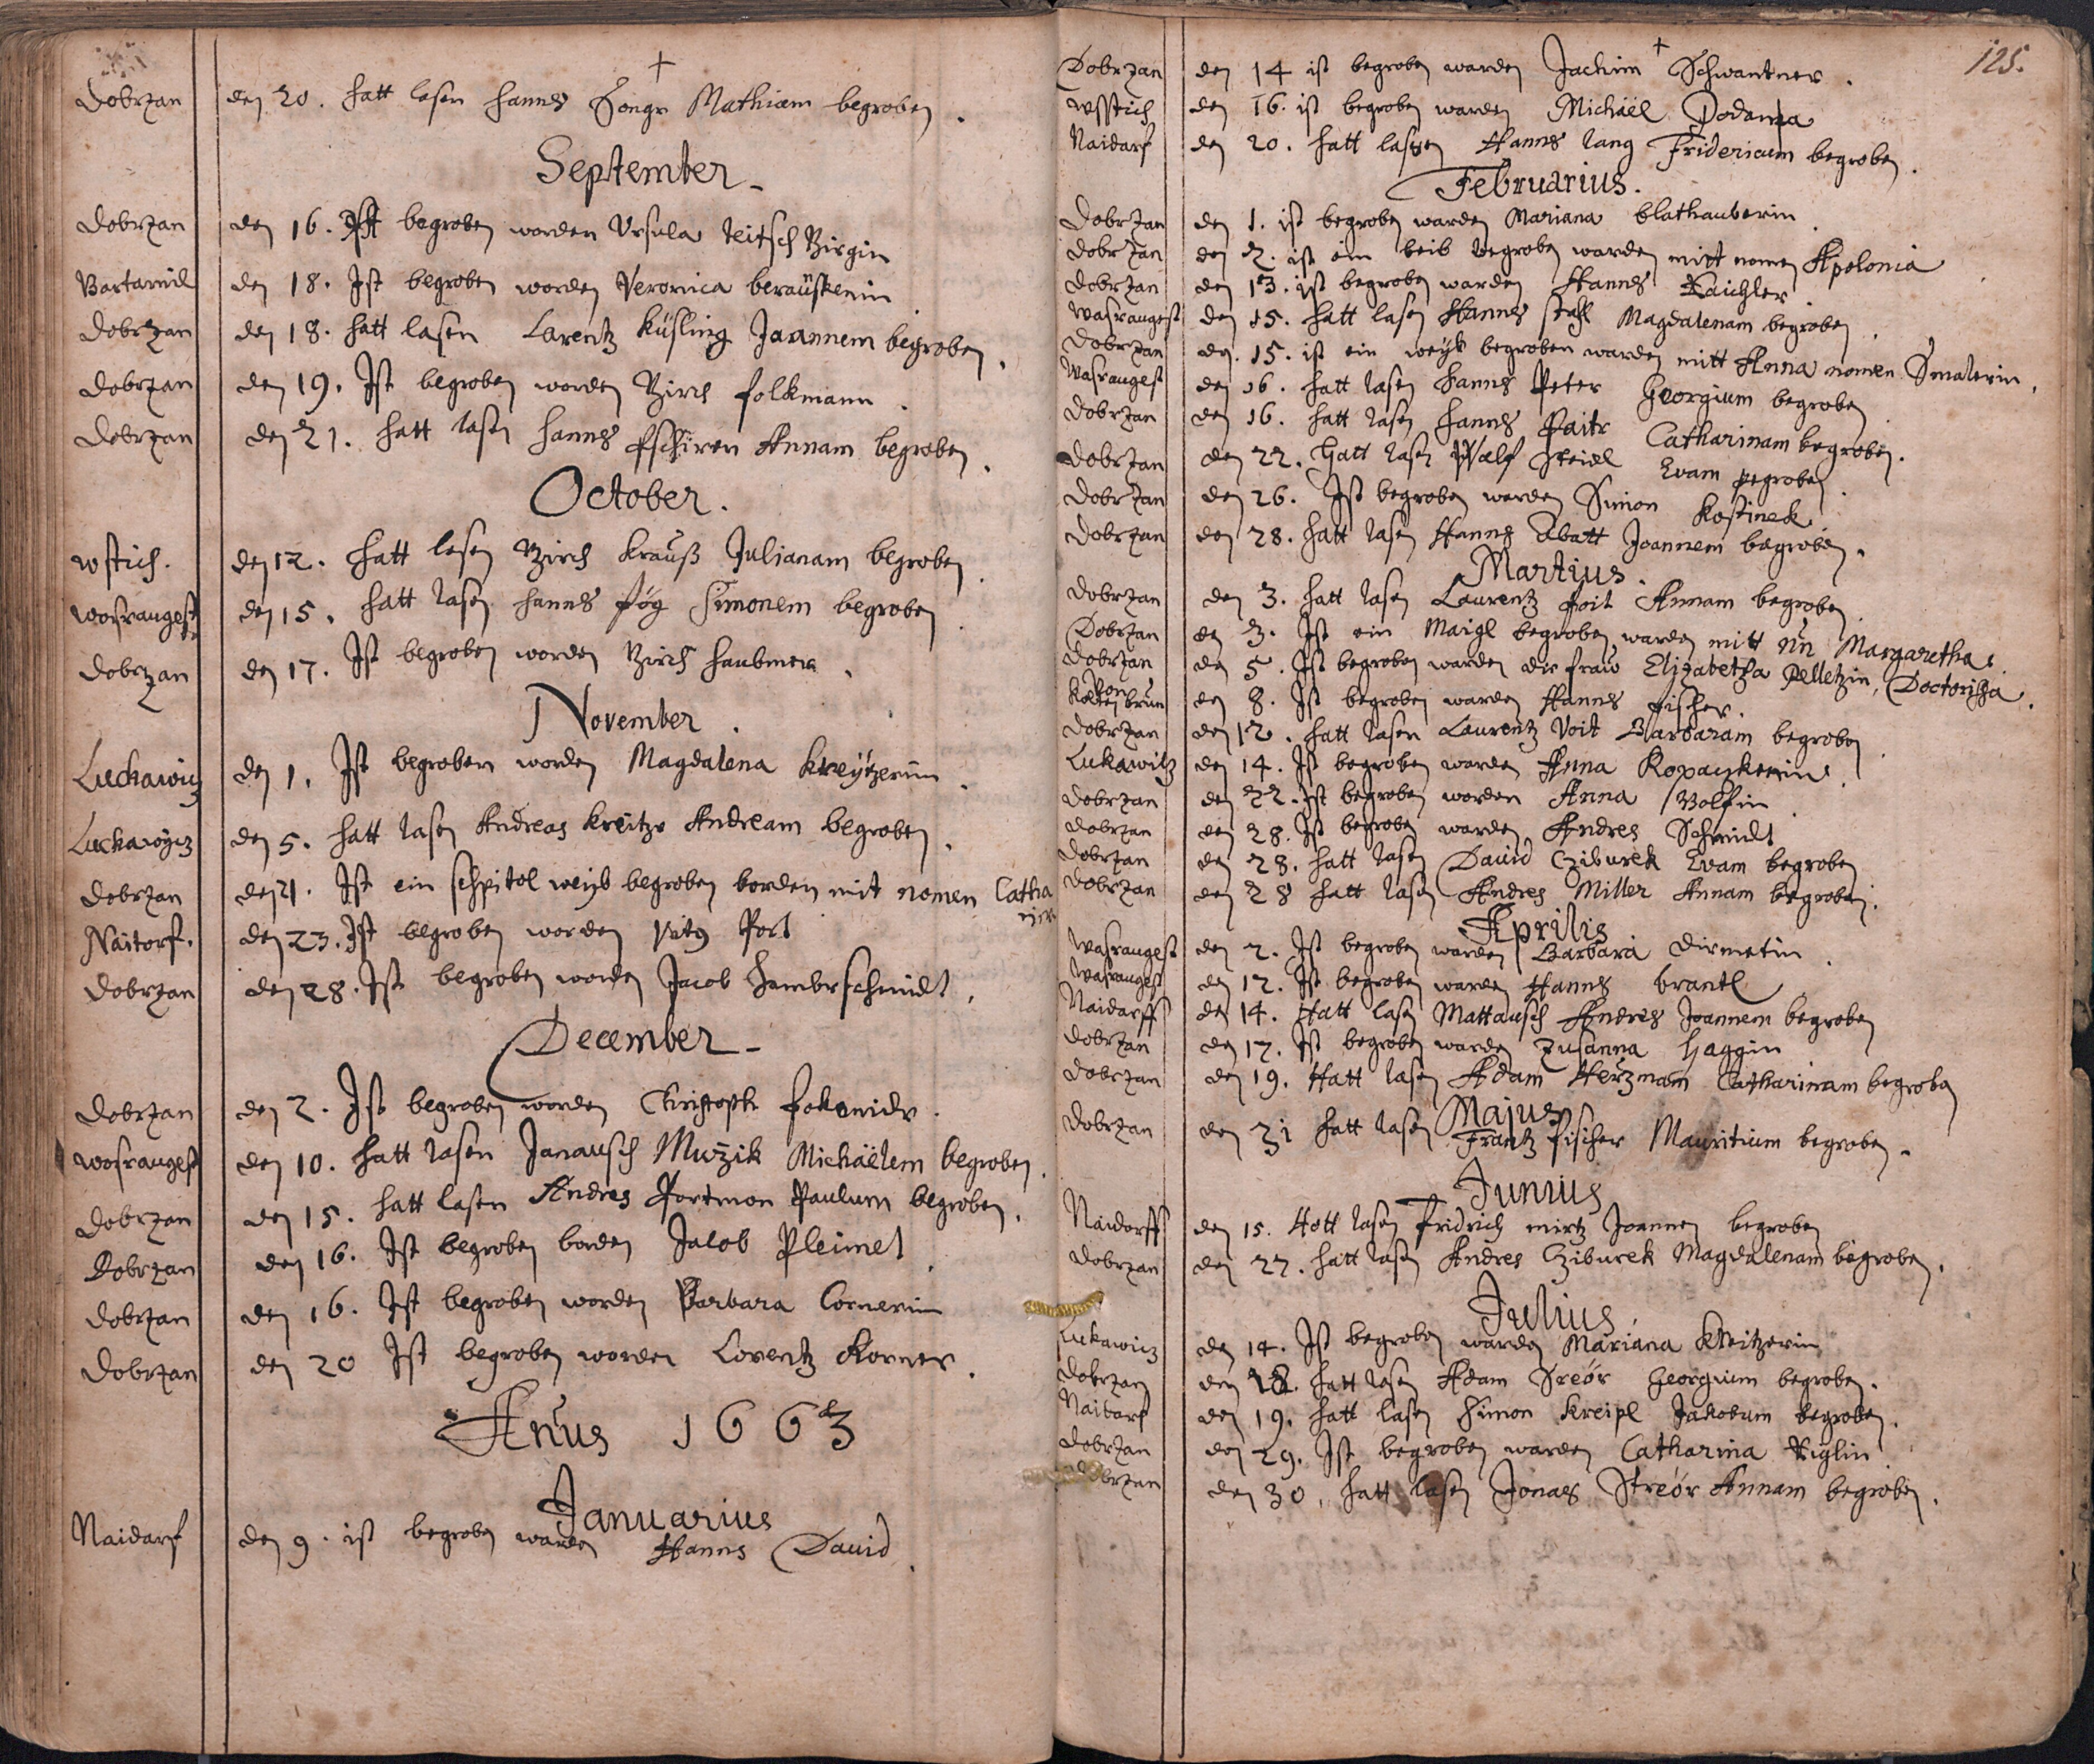 †
Dobrzan den 20. hatt lasen Hanns Mathiam begroben.
September
Dobrzan den 16. Ist begroben worden Ursula
den 18. Ist begroben worden Veronica
Dobrzan den 18. hatt lasen Larentz Küsling Joannem begroben.
Dobrzan den 19. Ist begroben worden folkmann.
Dobrzan den 21. hatt lasen Hanns Annam begroben.
October.
Wstich. den 12. hatt lasen Krauß Julianam begroben.
Wosraugest den 15. hatt lasen Hanns Simonem begroben.
Dobrzan den 17. Ist begroben worden
November.
Luckawicz den 1. Ist begroben worden Magdalena Kreützerin.
Luckawicz den 5. hatt lasen Andreas Kreitzr Andream begroben.
Dobrzan den 21. Ist ein schpitol weib begroben borden mit nomen Catha
rina
Naitorf. den 23. Ist begroben worden Port
Dobrzan den 28. Ist begroben worden Jacob Hamerschmidt.
December
Dobrzan den 2. Ist begroben worden Christoph
Wosraugest den 10. hatt lasen Janausch Muzik Michaëlem begroben.
Dobrzan den 15. hatt lasen Andres Portman Paulum begroben.
Dobrzan den 16. Ist begroben borden Jacob Pleimel.
Dobrzan den 16. Ist begroben worden Barbara Cornerin
Dobrzan den 20 Ist begroben worden Lorentz Korner.
Añus 1663
Januarius
Naidarf den 9. ist begroben warden Hanns David.
125.
†
Dobrzan den 14 ist begroben warden Jachim Schwantner.
Wsstich den 16. ist begroben warden Michäel Dodama
Naidarf den 20. hatt lassen Hanns Lang Fridericum begroben.
Februarius.
Dobrzan den 1. ist begroben warden Mariana Blathauberin
Dobrzan den 2. ist ein beib begroben warden mitt nomen Apolonia
Dobrzan den 13. ist begroben warden Hannes
Wasraugest den 15. hatt lasen Hannes Magdalenam begroben.
Dobrzan den 15. ist ein begroben warden mitt Anna nomen Smalerin.
Wasraugest den 16. hatt lasen Hanns Peter Georgium begroben
Dobrzan den 16. hatt lasen Hanns Catharinam begroben.
Dobrzan den 22. Hatt lasen Evam begroben.
Dobrzan den 26. Ist begroben warden Simon Kostinek.
Dobrzan den 28. hatt lasen Hanns Abatt Joannem begroben.
Martius.
Dobrzan den 3. hatt lasen Laurentz Foit Annam begroben
Dobrzan den 3. Ist ein Maigl begroben warden mitt Margaretha.
Dobrzan den 5. Ist begroben warden die fraw Elizabetha Pelletzin, Doctorissa.
Von den 8. Ist begroben warden Hanns Fischer.
Dobrzan den 12. hatt lasen Laurentz Voit Barbaram begroben
Lukawitz den 14. Ist begroben warden Anna
Dobrzan den 22. Ist begroben worden Anna Wolfin
Dobrzan den 28. Ist begroben warden Andres Schmidt
Dobrzan den 28. hatt lasen David Cziburek Evam begroben
Dobrzan den 28 hatt lasen Andres Miller Annam begroben.
Aprilis
Wasraugest den 2. Ist begroben warden Barbara Dirmetin.
Wasraugest den 12. Ist begroben warden Hanns Brantl
Naidarff den 14. Hatt lasen Mattausch Andres Joannem begroben
Dobrzan den 17. Ist begroben warden Zusanna Haggin
Dobrzan den 19. Hatt lasen Adam Herzmam Catharinam begroben
Majus
Dobrzan den 31 hatt lasen Frantz Fischer Mauritium begroben.
Junius
Naidorff den 15. Hott lasen Fridrich mirtz Joannen begroben
Dobrzan den 22. hatt lasen Andres Cziburek Magdalenam begroben.
Julius
Lukawicz den 14. Ist begroben warden Mariana Kreitzerin
Dobrzan den 18. hatt lasen Adam Streör Georgium begroben.
Naitarf den 19. hatt lasen Simon Kreipl Jakobum begroben.
Dobrzan den 29. Ist begroben warden Catharina
Dobrzan den 30. hatt lasen Jonas Streör Annam begroben.